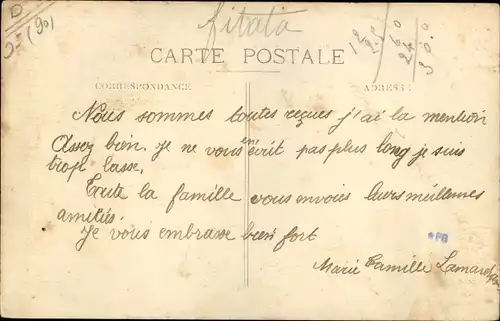 CARTE POSTALE
CORRESPONDANCE
ADRESSE
Nous sommes toutes reçues j'ai la mention
Assez bien. je ne vous en écrit pas plus long je suis
trop lasse.
Toute la famille vous envois leurs meilleures
amitiés.
Je vous embrasse bien fort
*PB
Marie Famille